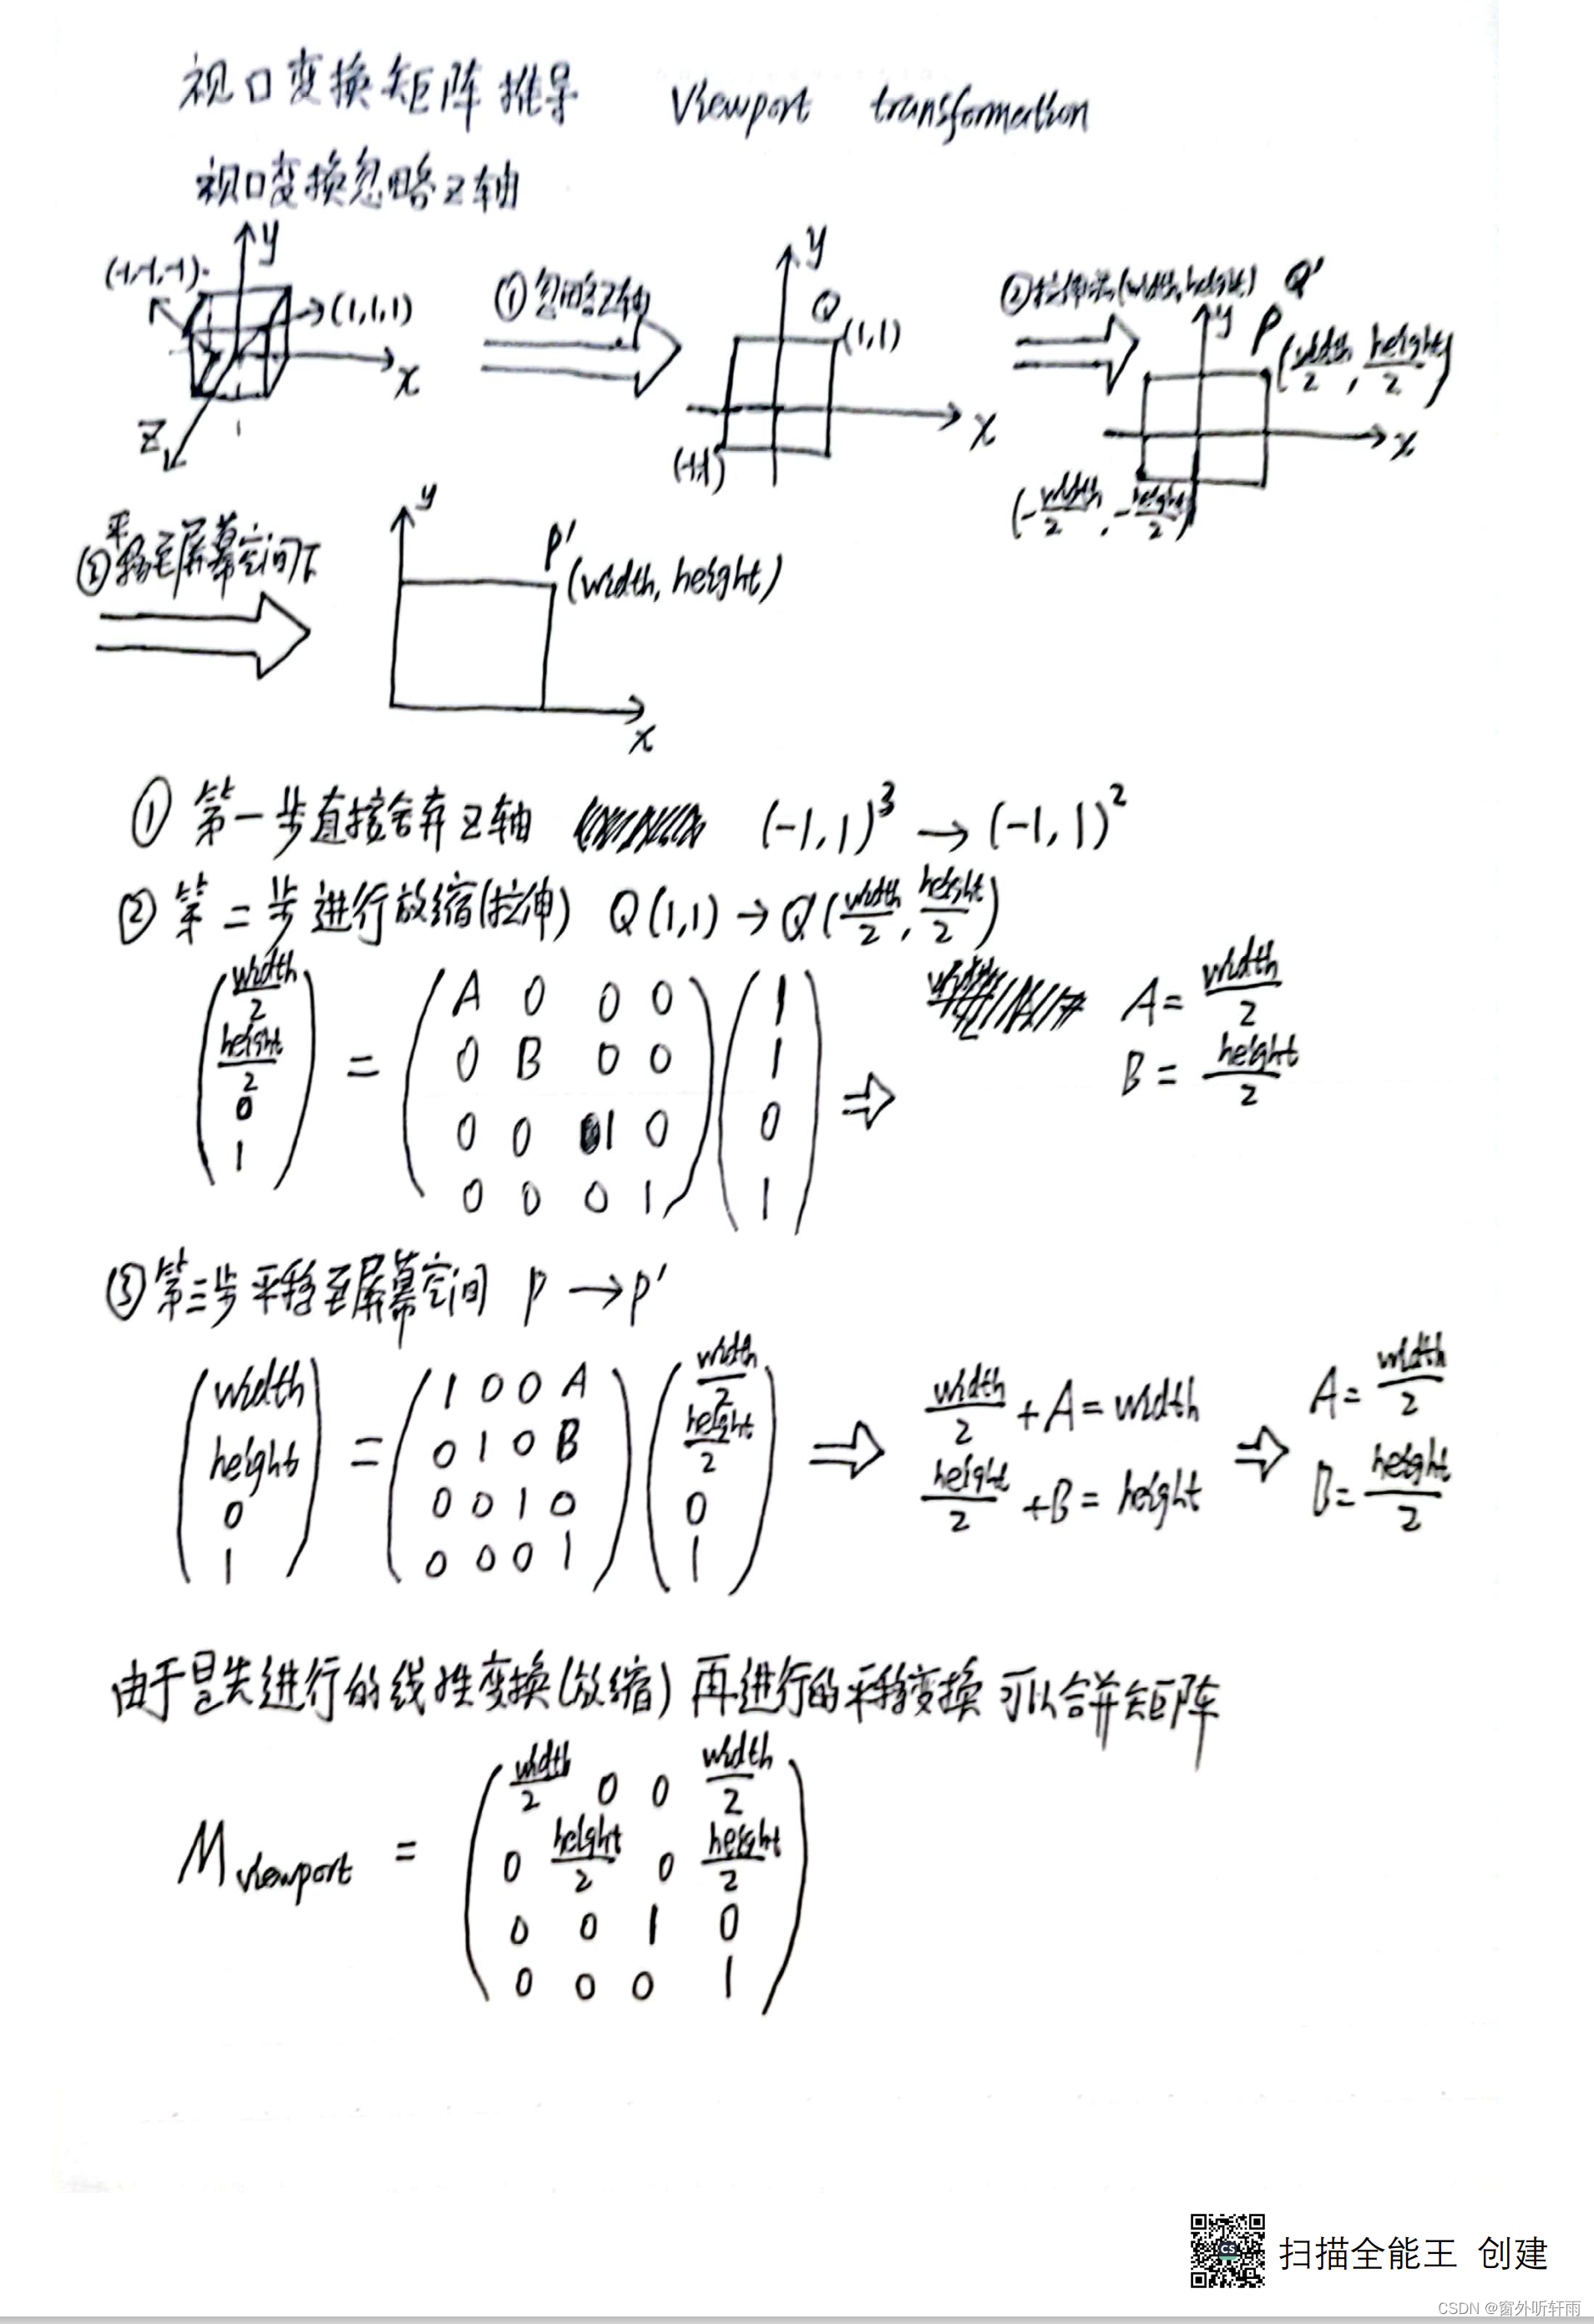 视口变换矩阵推导 Viewport transformation
视口变换忽略z轴
(-1,-1,-1) y (1,1,1) x z 1
①忽略z轴
y Q (1,1) x (-1,-1)
②拉伸至(width,height) Q'
y P (width/2, height/2) x (-width/2, -height/2)
③平移至屏幕空间下
y P' (width, height) x
① 第一步直接舍弃z轴 (-1,1)³ → (-1,1)²
② 第二步进行放缩(拉伸) Q(1,1) → Q'(width/2, height/2)
(width/2 height/2 0 1) = (A 0 0 0
0 B 0 0
0 0 1 0
0 0 0 1) (1 1 0 1) ⇒ A = width/2
B = height/2
③第三步平移至屏幕空间 P → P'
(width height 0 1) = (1 0 0 A
0 1 0 B
0 0 1 0
0 0 0 1) (width/2 height/2 0 1) ⇒ width/2 + A = width ⇒ A = width/2
height/2 + B = height B = height/2
由于是先进行的线性变换(放缩) 再进行的平移变换 可以合并矩阵
M viewport = (width/2 0 0 width/2
0 height/2 0 height/2
0 0 1 0
0 0 0 1)
CS 扫描全能王 创建
CSDN @窗外听轩雨